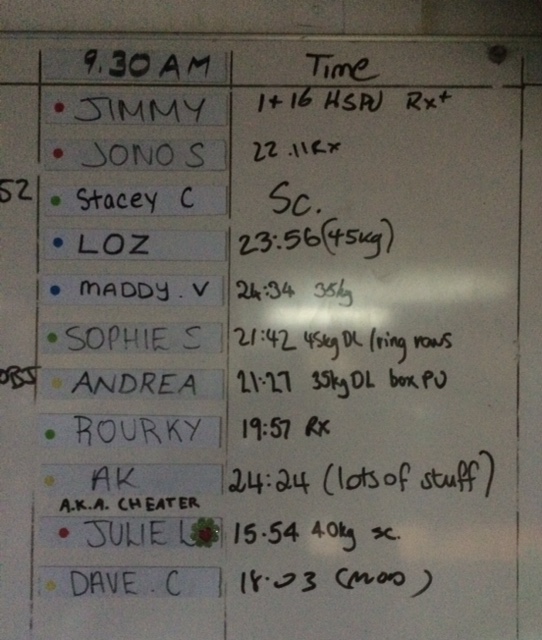 9.30 AM Time
JIMMY 1+16 HSPU Rx+
JONO S 22.11 Rx
52 Stacey C Sc.
LOZ 23:56 (45kg)
MADDY.V 24:34 35kg
SOPHIE S 21:42 45kg DL /ring rows
ANDREA 21:27 35kg DL box PU
ROURKY 19:57 Rx
AK 24:24 (lots of stuff)
A.K.A. CHEATER
JULIE L 15.54 40kg sc.
DAVE.C 18.03